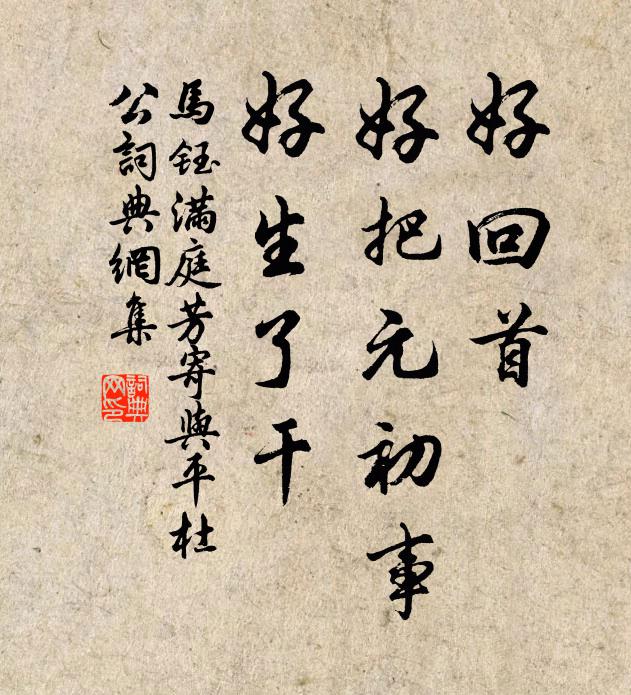 好回首
好把元初事
好生了干
馬鈺滿庭芳寄與平杜
公詞典網集
詞典网印